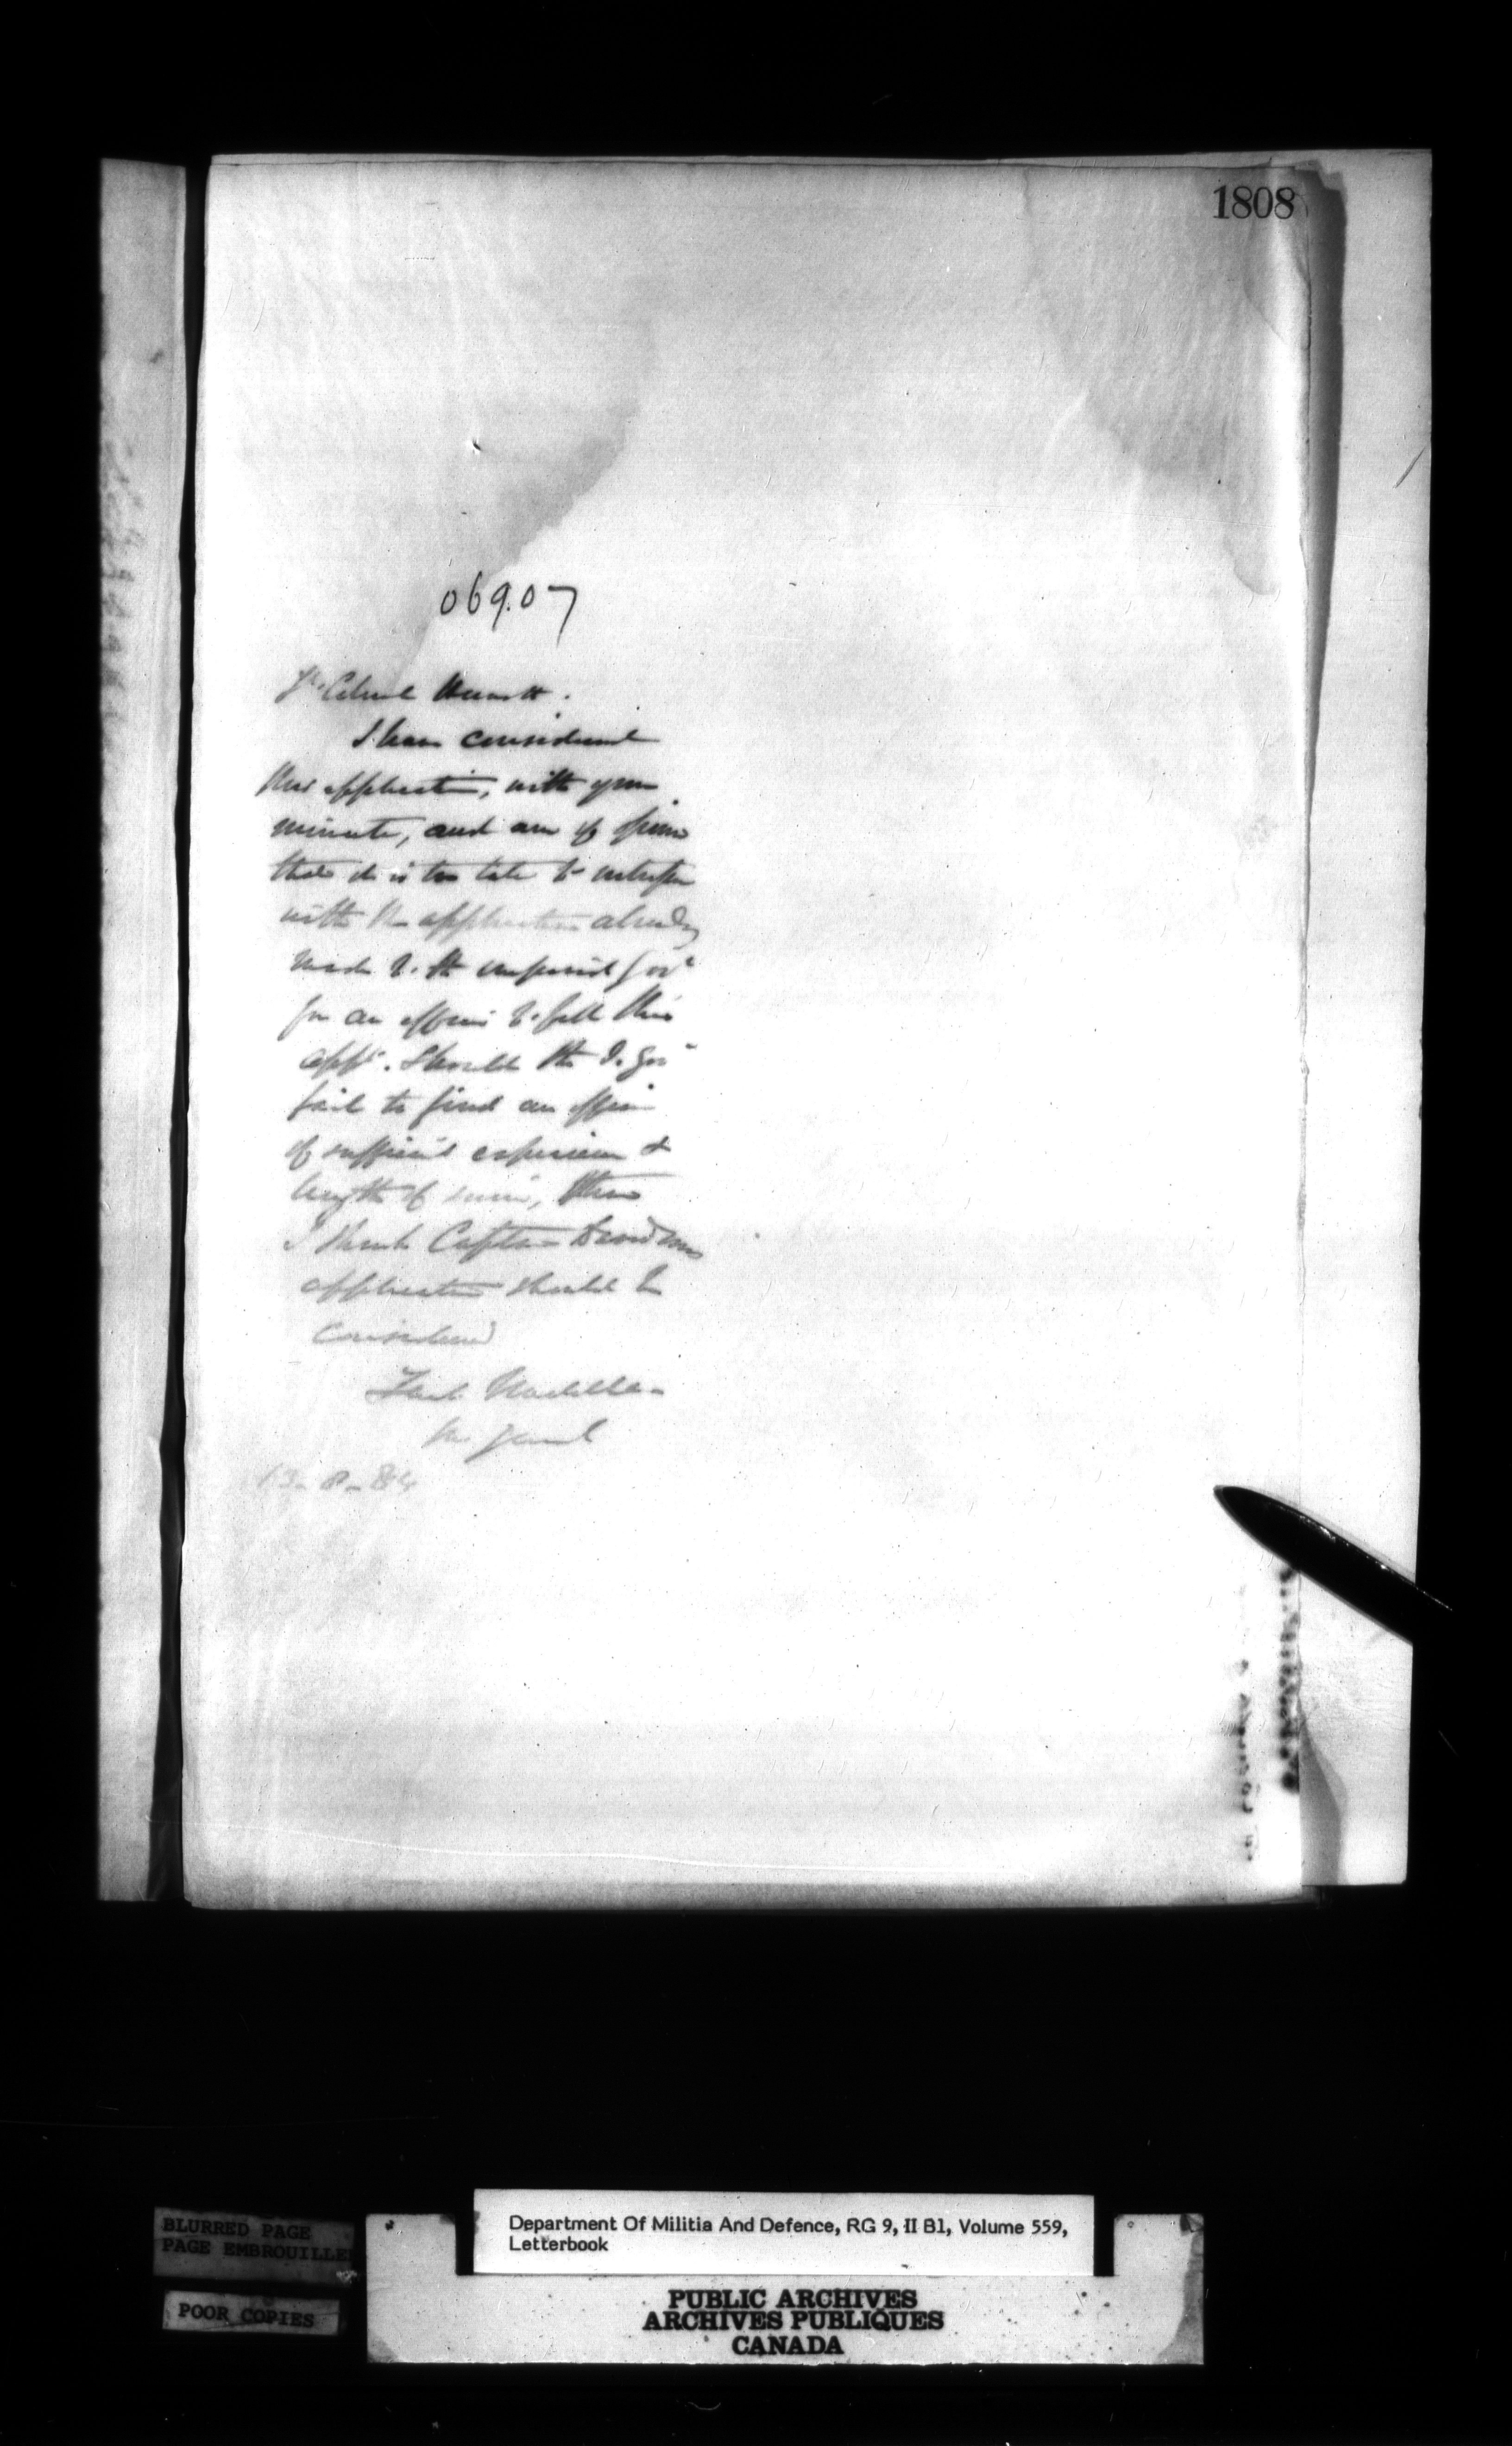 1808
069.07
Lt. Colonel
I have considered
this application, with your
minute, and am of opinion
that it is too late to interfere
with the application already
made to the Imperial Govt
for an officer to fill this
appt. Should the I. Govt
fail to find an officer
of sufficient experience &
length of service, then
I think Captain Davidsons
application should be
considered
Fred. Middleton
M General
13-8-84
BLURRED PAGE
PAGE EMBROUILLE
POOR COPIES
Department Of Militia And Defence, RG 9, II B1, Volume 559,
Letterbook
PUBLIC ARCHIVES
ARCHIVES PUBLIQUES
CANADA